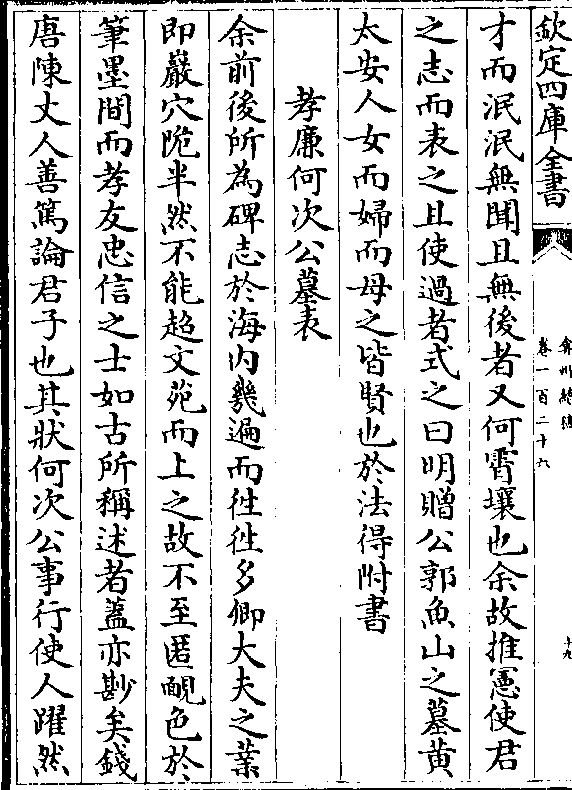 欽定四庫全書
弇州續稿
卷一百二十六
十九
才而泯泯無聞且無後者又何霄壤也余故推憲使君
之志而表之且使過者式之曰明贈公郭魚山之墓黄
太安人女而婦而母之皆賢也於法得附書
孝廉何次公墓表
余前後所為碑志於海内幾遍而徃徃多卿大夫之業
即巖穴陁半然不能超文苑而上之故不至匿靦色於
筆墨間而孝友忠信之士如古所稱述者蓋亦尠矣錢
唐陳丈人善篤論君子也其狀何次公事行使人躍然